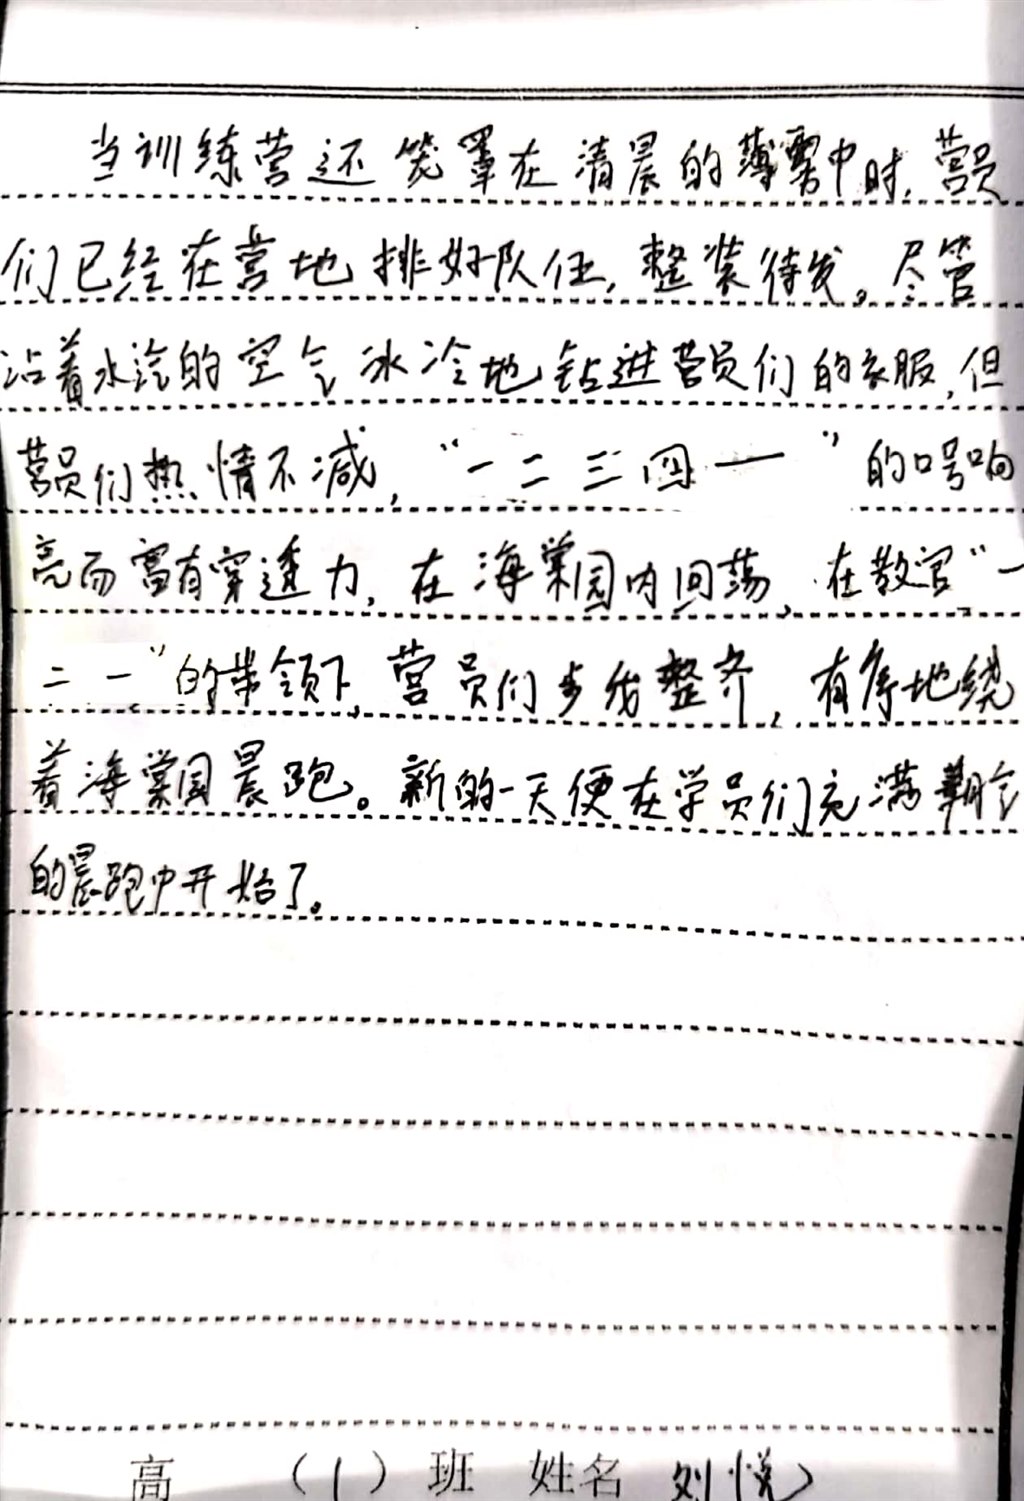 当训练营还笼罩在清晨的薄雾中时,营员
们已经在营地排好队伍,整装待发。尽管
沾着水汽的空气冰冷地钻进营员们的衣服,但
营员们热情不减,“一二三四一”的口号响
亮而富有穿透力,在海棠园内回荡,在教官“一
二一”的带领下,营员们步伐整齐,有序地绕
着海棠园晨跑。新的一天便在学员们充满朝气
的晨跑中开始了。
高 (1)班 姓名 刘悦